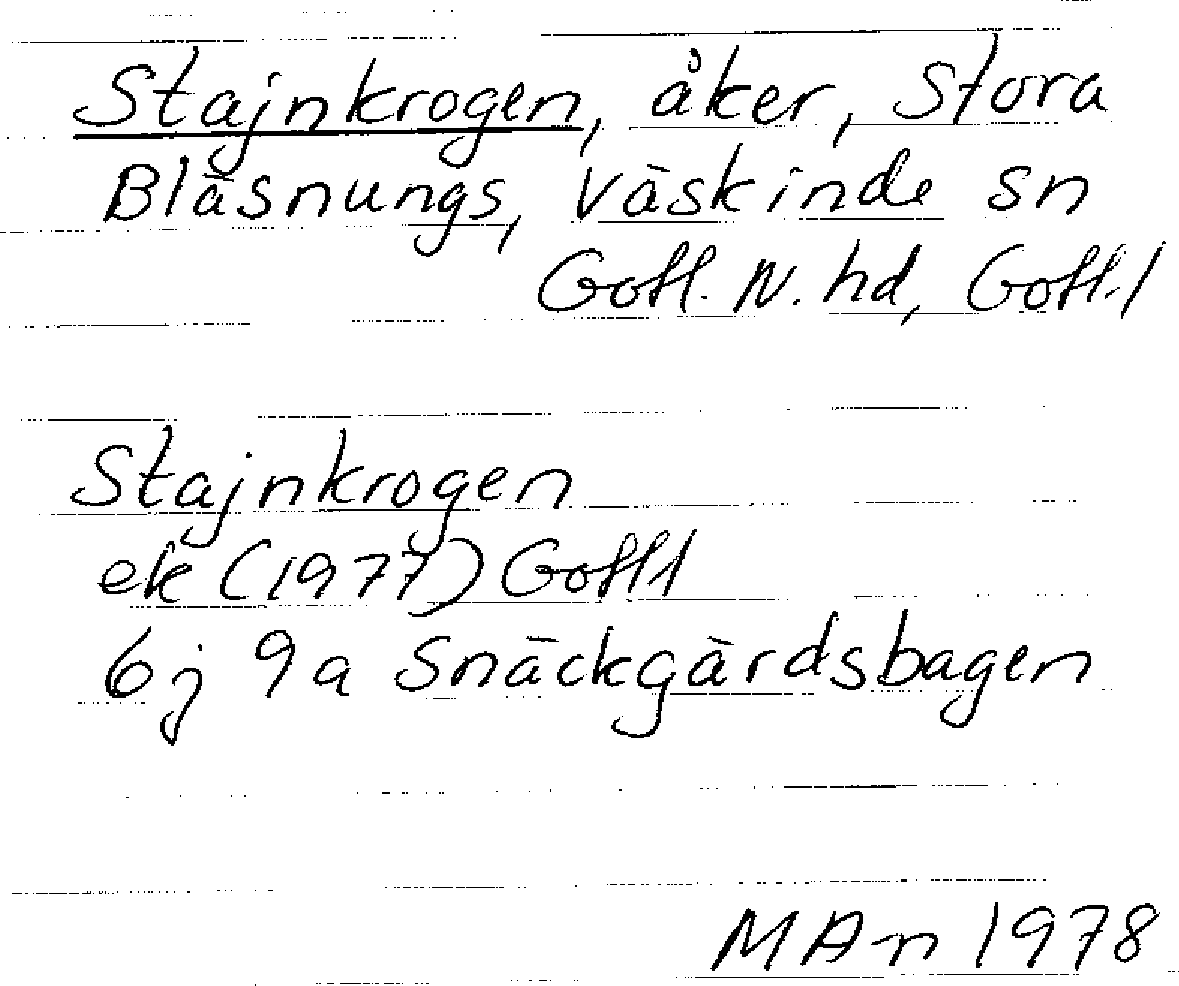 Stajnkrogen, åker, Stora
Bläsnungs, Väskinde sn
Gotl. N. hd, Gotl. l
Stajnkrogen
ek (1977) Gotl l
6j 9a Snäckgärdsbagen
MAn 1978